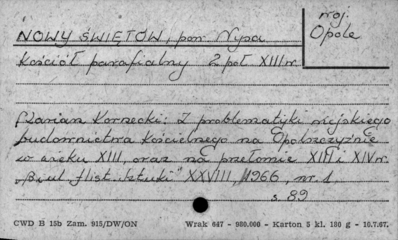 woj.
Opole
NOWY ŚWIĘTÓW, pow. Nysa
Kościół parafialny 2 poł XIII w.
Marian Kornecki: Z problematyki wiejskiego
budownictwa kościelnego na Opolszczyźnie
w wieku XIII, oraz na przełomie XIII i XIV w.
"Biul. Hist. Sztuki" XXVIII, 1966, nr. 1,
s. 89
CWD B 15b Zam. 915/DW/ON Wrak 647 - 980.000 - Karton 5 kl. 180 g - 10.7.67.